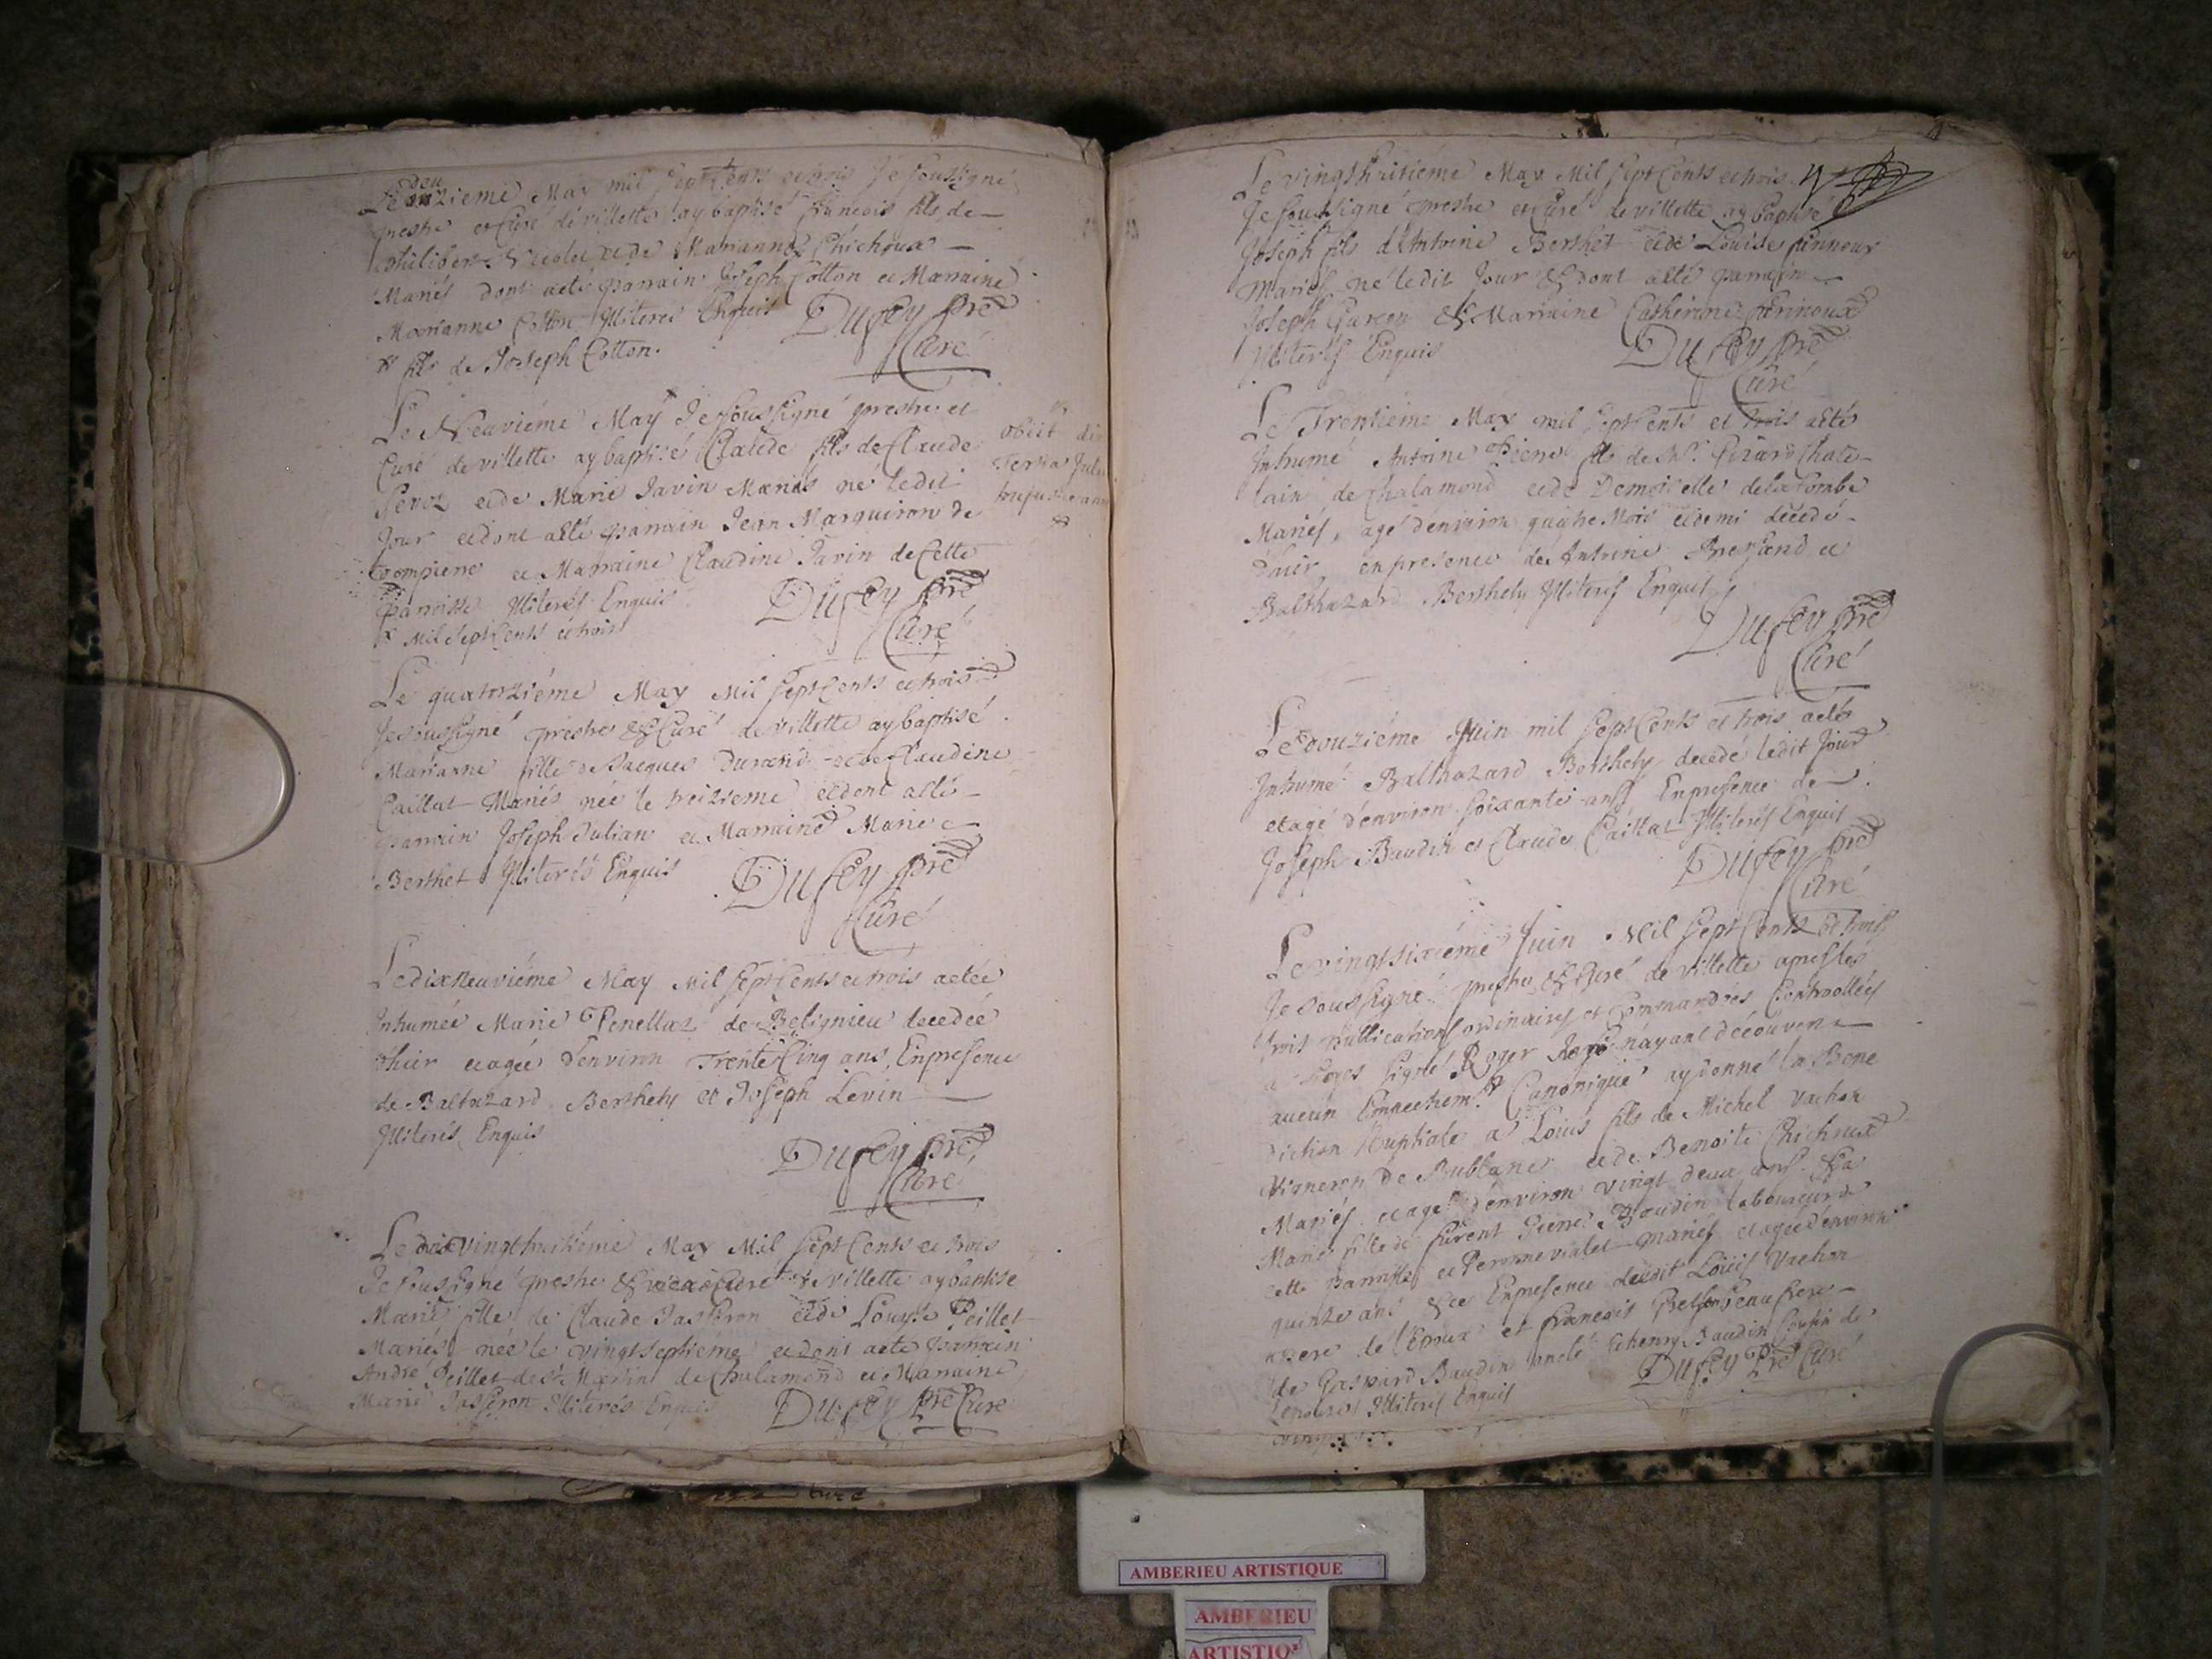 Le deuzieme May mil sept Cents et trois Je soussigné
prestre et Curé de villette ay baptisé francois fils de
philibert Nicolet et de Marianne Chichoux
Mariés dont acte parrain Joseph Cotton et Marraine
Marianne Cotton Illiterés Enquis Dufey pre
Curé
fils de Joseph Cotton.
Le Neuviéme May Je soussigné prestre et
Curé de villette ay baptisé Claude fils de Claude
et de Marie Javin Mariés né ledit
Jour et dont acté parrain Jean Marquiron de
et Marraine Claudine Javin de Cette
parroisse Illiterés Enquis
Mil Sept Cents et trois
Dufey pre
Curé
obiit die
Tertia Julii
hujusce anni
Le quatorziéme May Mil sept Cents et trois
Je soussigné prestre & Curé de villette ay baptisé
Marianne fille de Jacques Durand et de Claudine
Caillat Mariés née le treizieme et dont acté
parrain Joseph Julian et Marraine Marie
Berthet Illiterés Enquis Dufey pre
Curé
Le dixneuviéme May Mil sept Cents et trois a etée
Inhumée Marie Penellaz de Belignieu decedée
d'hier et agée d'environ Trente Cinq ans, En presence
de Baltazard Berthely et Joseph Levin
Illiterés Enquis
Dufey pre
Curé
Le vingthuitiéme May Mil sept Cents et trois
Je soussigné prestre & Curé de villette ay baptisé
Marie fille de Claude Jasseron et de Louyse Peillet
Mariés née le vingtseptiéme et dont acte parrain
André Peillet de St Martin de Chalamond et Marraine
Marie Jasseron Illiterés Enquis Dufey Pre Curé
Le vingthuitiéme May Mil sept Cents et trois
Je soussigné prestre et Curé de villette ay baptisé
Joseph fils d'Antoine Berthet et de Louise
Mariés né ledit Jour & dont acté parrain
Joseph & Marraine Catherine
Illiterés Enquis
Dufey pre
Curé
Le Trentiéme May mil sept Cents et trois a eté
Inhumé Antoine Pierre fils de Sr. Chate-
lain de Chalamond et de Demoiselle de la Combe
Mariés, agé d'environ quatre Mois et demi decedé
d'hier en presence de Antoine Bressend et
Balthazard Berthely Illiterés Enquis
Dufey pre
Curé
Le douziéme Juin mil sept Cents et trois a eté
Inhumé Balthazard Berthely decedé ledit Jour
et agé d'environ soixante ans En presence de
Joseph Baudin et Claude Caillat Illiterés Enquis
Dufey pre
Curé
Le vingtsixiéme Juin Mil sept Cents et trois
Je soussigné prestre & Curé de villette apres les
trois publications ordinaires et Commandées Controollées
a signé Roger n'ayant découvert
aucun Empechemt. Canonique ay donné la Bene
diction Nuptiale a Louis fils de Michel Vachon
Vigneron de Bublane et de Benoite Chichoux
Mariés et agé d'environ vingt deux ans &a
Marie fille de furent Pierre Baudin laboureur de
cette parroisse et Peronne vialet mariés et agée d'environ
quinze ans En presence dudit Louis Vachon
pere de l'Epoux et francois frere
de Gaspard Baudin oncle et henry Baudin Cousin de
L'epouse Illiterés Enquis Dufey Pre Curé
AMBERIEU ARTISTIQUE
AMBERIEU
ARTISTIQ